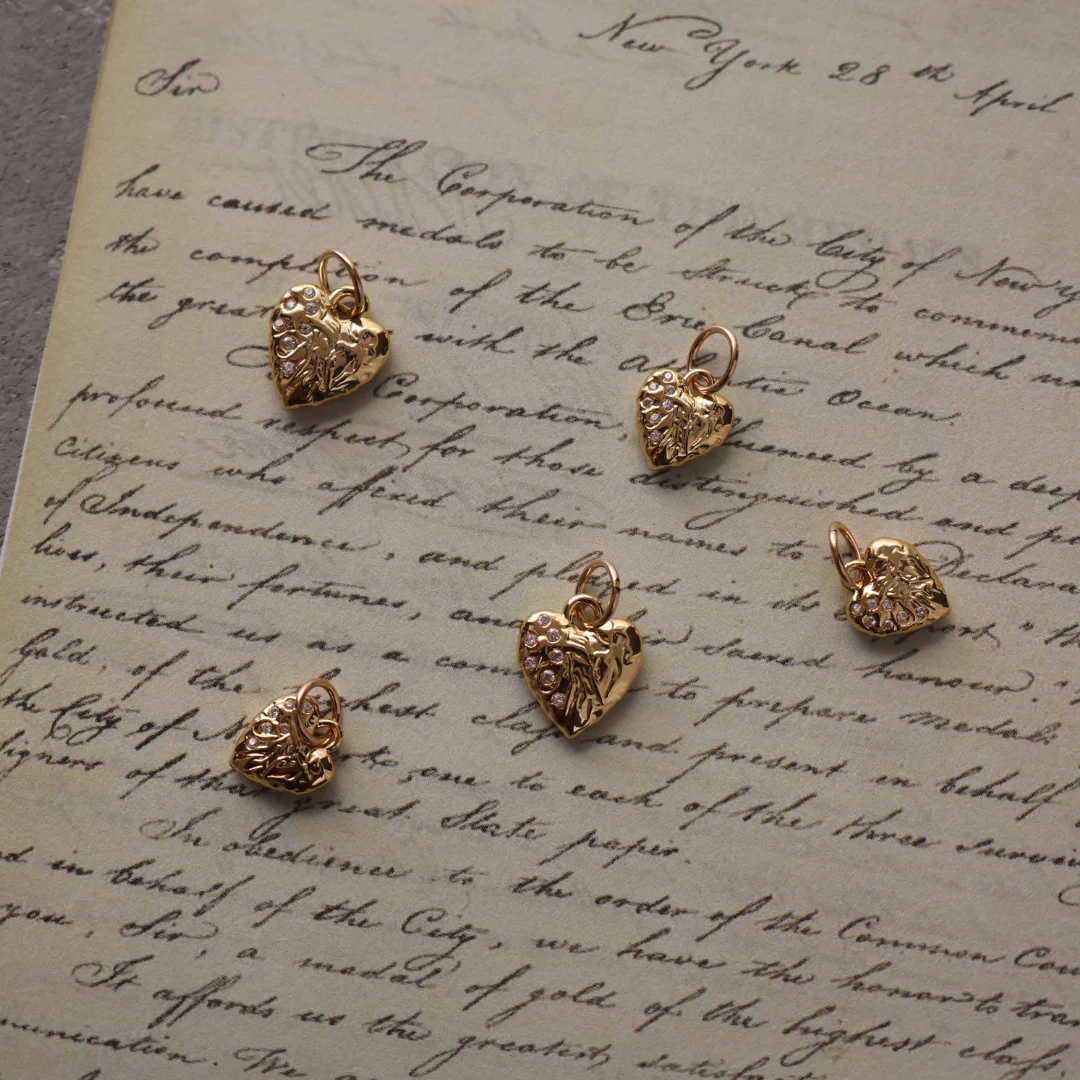 New York 28th April
Sir
The Corporation of the City of New Y
have caused medals to be struck to commem
the completion of the Erie Canal which un
the great with the Atlantic Ocean.
Corporation, by a deep
profound respect for those distinguished and pa
Citizens who affixed their names to Declara
of Independence, and placed in its "th
lives, their fortunes, and sacred honour."
instructed us as a com to prepare medals
Gold, of the highest class and present in behalf
the City of New York, one to each of the three survivi
signers of that great State paper.
In obedience to the order of the Common Cou
nd in behalf of the City, we have the honor to tran
you, Sir, a medal of gold of the highest class.
It affords us the greatest satisfact
munication. We